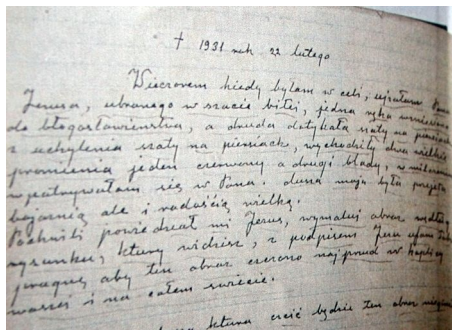 † 1931 rok 22 lutego
Wieczorem kiedy byłam w celi, ujrzałam Pana
Jezusa, ubranego w szacie białej, jedna ręka wzniesiona
do błogosławieństwa, a druga dotykała szaty na piersiach
z uchylenia szaty na piersiach, wychodziły dwa wielkie
promienia jeden czerwony a drugi blady, w milczeniu
wpatrywałam się w Pana. dusza moja była przejęta
bojaźnią ale i radością wielką.
Po chwili powiedział mi Jezus, wymaluj obraz według
rysunku, który widzisz, z podpisem Jezu ufam Tobie
pragnę aby ten obraz czczono najprzód w kaplicy
waszej i na całem świecie.
która czcić będzie ten obraz